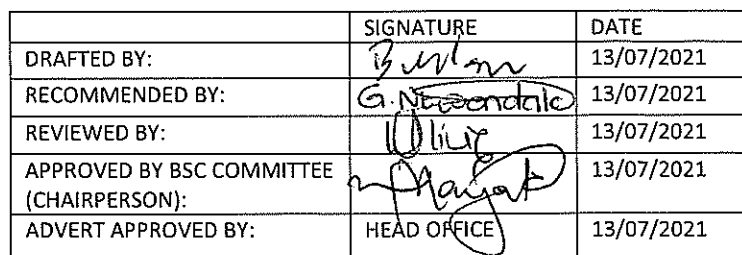 SIGNATURE DATE
DRAFTED BY: 13/07/2021
RECOMMENDED BY: G. 13/07/2021
REVIEWED BY: 13/07/2021
APPROVED BY BSC COMMITTEE 13/07/2021
(CHAIRPERSON):
ADVERT APPROVED BY: HEAD OFFICE 13/07/2021